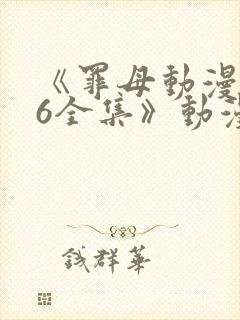 《罪母動漫
6全集》動漫
钱群華